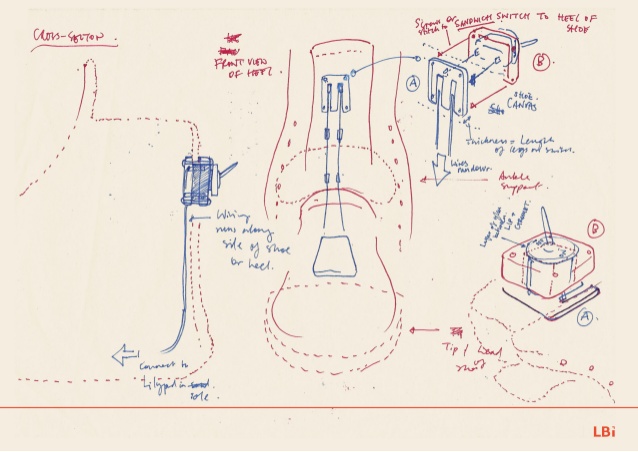 CROSS-SECTION.
FRONT VIEW
OF HEEL.
Screws or
stitch to
SANDWICH SWITCH TO HEEL OF
SHOE
B
A
SHOE
CANVAS
Thickness = Length
of legs on switch.
Wires
run down
Ankle
support.
Wiring
runs along
side of shoe
or heel.
B
A
Tip / head
of
shoe
Connect to
Lilypad in
sole.
LBi